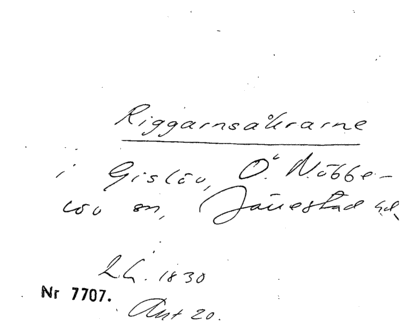 Riggarnsåkrarne
i Gislöv, Ö. Nöbbe-
löv sn, Järrestad hd.
L.h. 1830
Nr 7707.
Akt 20.